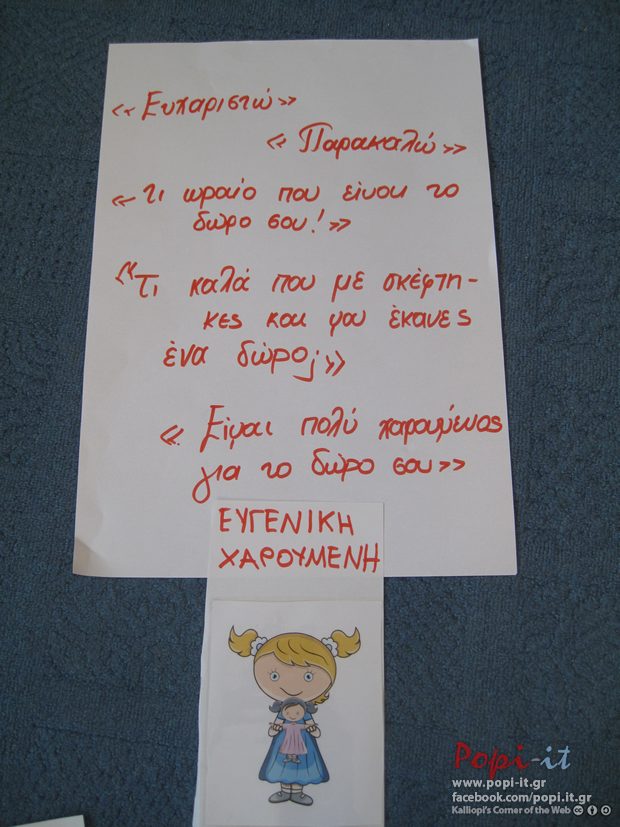 «Ευχαριστώ»
«Παρακαλώ»
«τι ωραίο που είναι το
δώρο σου!»
"Τι καλά που με σκέφτη-
κες και μου έκανες
ένα δώρο;»
«Είμαι πολύ χαρούμενος
για το δώρο σου»
ΕΥΓΕΝΙΚΗ
ΧΑΡΟΥΜΕΝΗ
Popi-it
www.popi-it.gr
facebook.com/popi.it.gr
Kalliopi's Corner of the Web